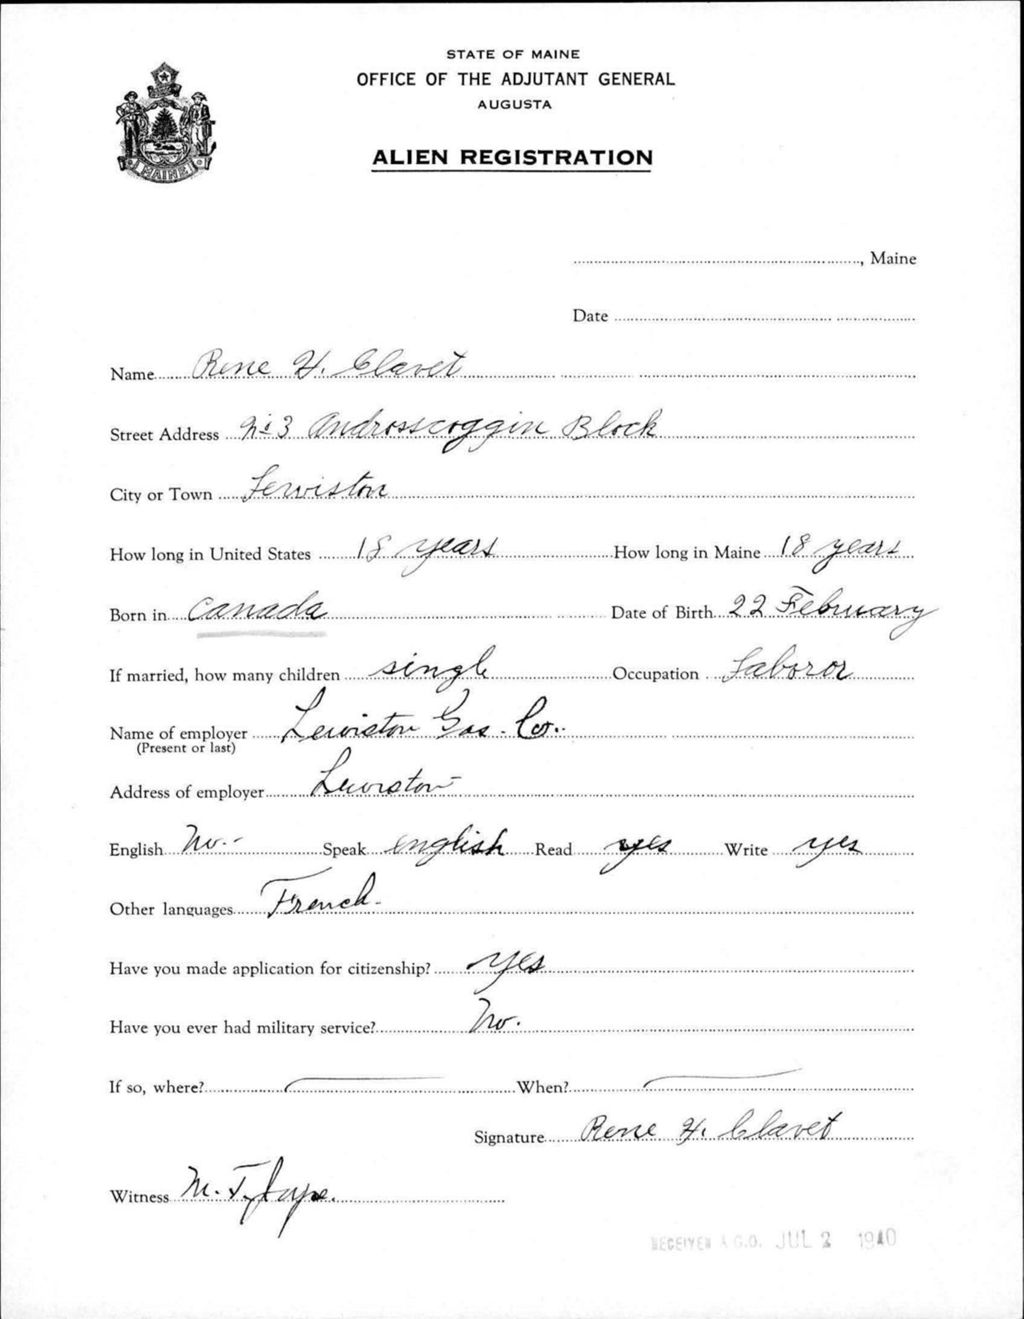 STATE OF MAINE
OFFICE OF THE ADJUTANT GENERAL
AUGUSTA
ALIEN REGISTRATION
MAINE
, Maine
Date
Name Rene H. Clavet
Street Address No 3 Androsscoggin Block
City or Town Lewiston
How long in United States 18 years How long in Maine 18 years
Born in Canada Date of Birth 22 February
If married, how many children single Occupation Laboror
Name of employer Lewiston Gas Co.
(Present or last)
Address of employer Lewiston
English No. Speak english Read yes Write yes
Other languages French
Have you made application for citizenship? yes
Have you ever had military service? No.
If so, where? When?
Signature Rene H. Clavet
Witness M. T.
RECEIVED A.G.O. JUL 2 1940